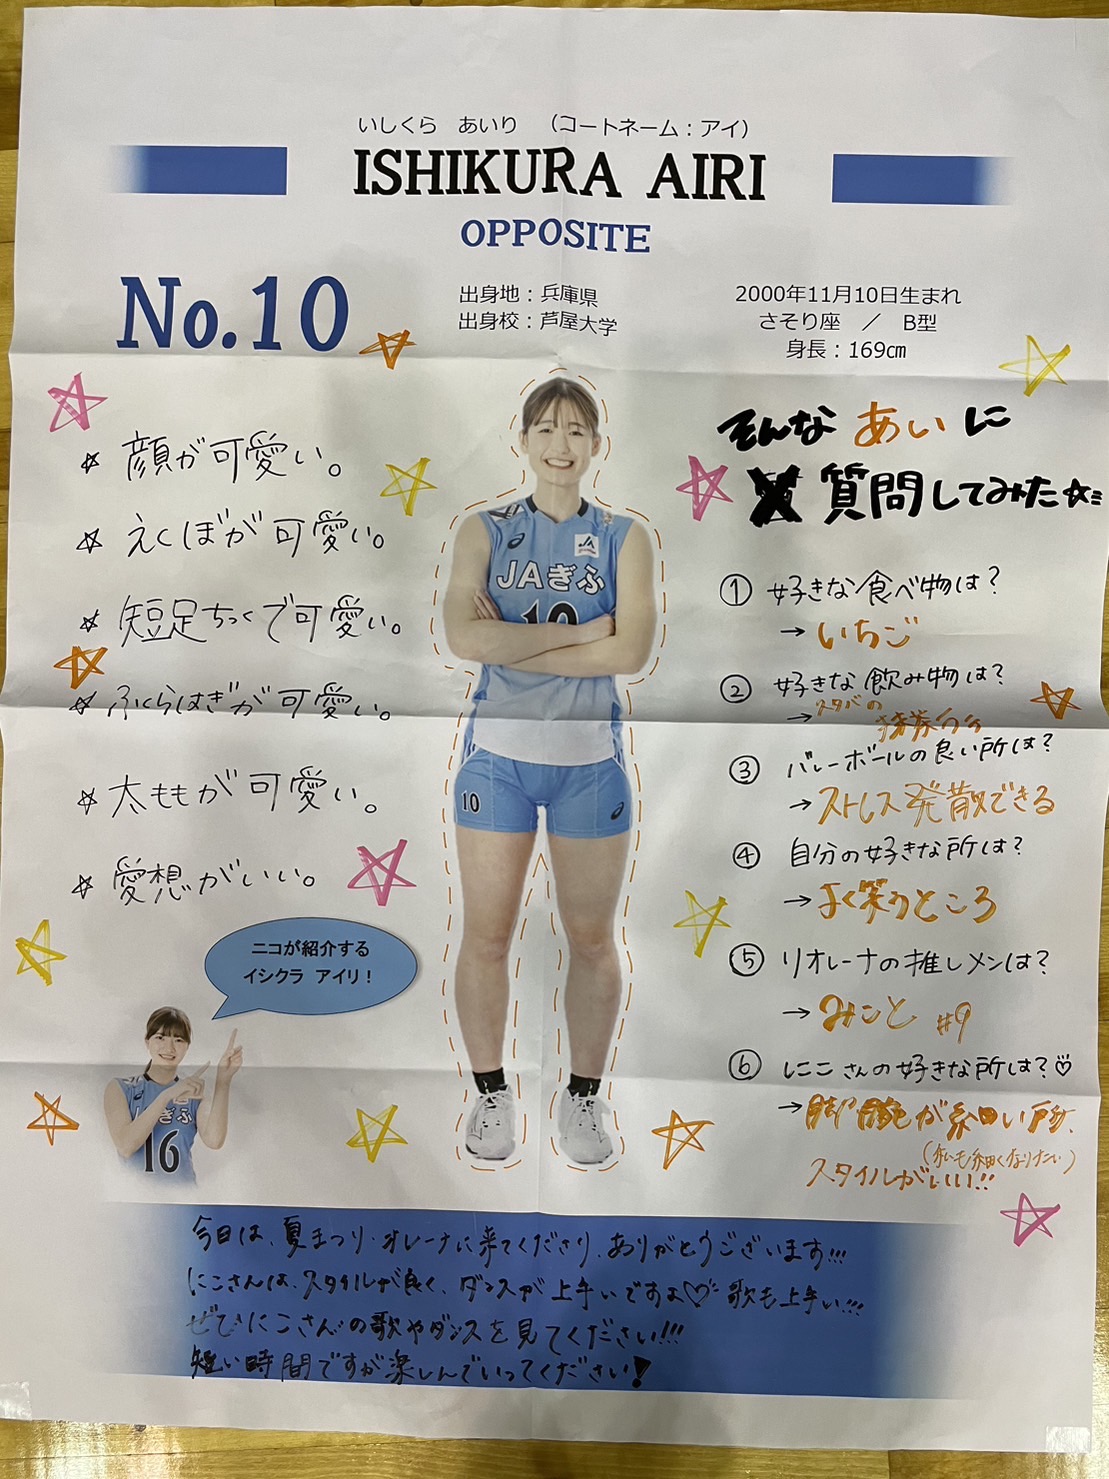 いしくら あいり （コートネーム：アイ）
ISHIKURA AIRI
OPPOSITE
No.10
出身地：兵庫県
出身校：芦屋大学
2000年11月10日生まれ
さそり座 ／ B型
身長：169㎝
☆ 顔が可愛い。
☆ えくぼが可愛い。
☆ 短足ちっくで可愛い。
☆ ふくらはぎが可愛い。
☆ 太ももが可愛い。
☆ 愛想がいい。
ニコが紹介する
イシクラ アイリ！
16
JAぎふ
10
10
そんな あい に
質問してみた☆
① 好きな食べ物は？
→ いちご
② 好きな飲み物は？
→ スタバの抹茶
③ バレーボールの良い所は？
→ ストレス発散できる
④ 自分の好きな所は？
→ よく笑うところ
⑤ リオレーナの推しメンは？
→ みこと #9
⑥ にこさんの好きな所は？♡
→ 脚 腕が細い所、
（私も細くなりたい）
スタイルがいい!!
今日は、夏まつり・オレーナに来てくださり、ありがとうございます!!!
にこさんは、スタイルが良く、ダンスが上手いですよ♡ 歌も上手い!!!
ぜひにこさんの歌やダンスを見てください!!!
短い時間ですが楽しんでいってください!